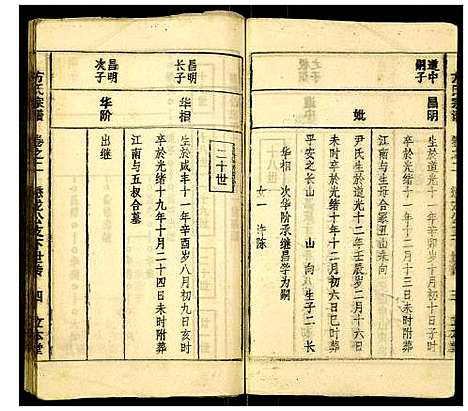 方氏宗譜
道中
嗣子
昌明
生於道光十一年十月初十日子时
卒於光绪十年十二月十三日未时葬
江南与生母合冢丑山未向
妣
尹氏生於道光十二年壬辰岁二月十六日
未时卒於光绪十年十二月初六日巳时葬
平安之长山 山 向 生子二 长
华相 次华阶承继昌学为嗣
女一 许陈
二十世
昌明
长子
华相
生於咸丰十一年辛酉岁八月初九日亥时
卒於光绪十九年十月二十四日未时附葬
江南与五叔合墓
昌明
次子
华阶
出继
方氏宗譜
卷之二
四